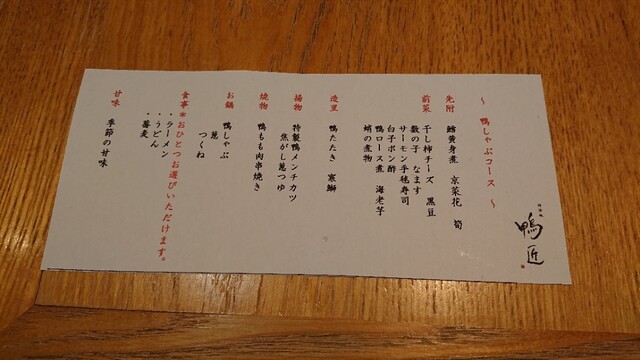 鴨匠
～ 鴨しゃぶコース ～
先附 鱈黄身煮 京菜花 筍
前菜 干し柿チーズ 黒豆
数の子 なます
サーモン手毬寿司
白子ポン酢
鴨ロース煮 海老芋
蛸の煮物
造里 鴨たたき 寒鰤
揚物 特製鴨メンチカツ
焦がし葱つゆ
焼物 鴨もも肉串焼き
お鍋 鴨しゃぶ
葱
つくね
食事＊おひとつお選びいただけます。
・ラーメン
・うどん
・蕎麦
甘味 季節の甘味